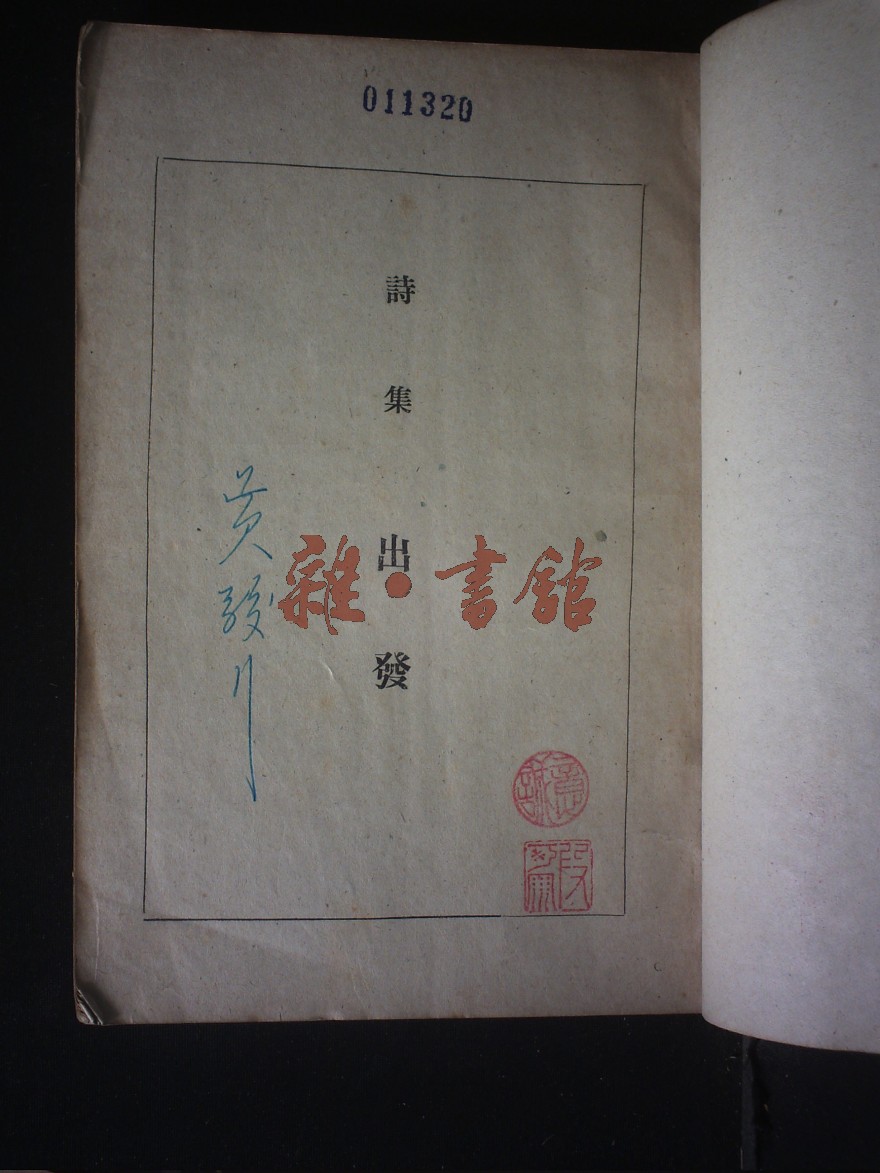 011320
詩集出發
黃
雜·書館